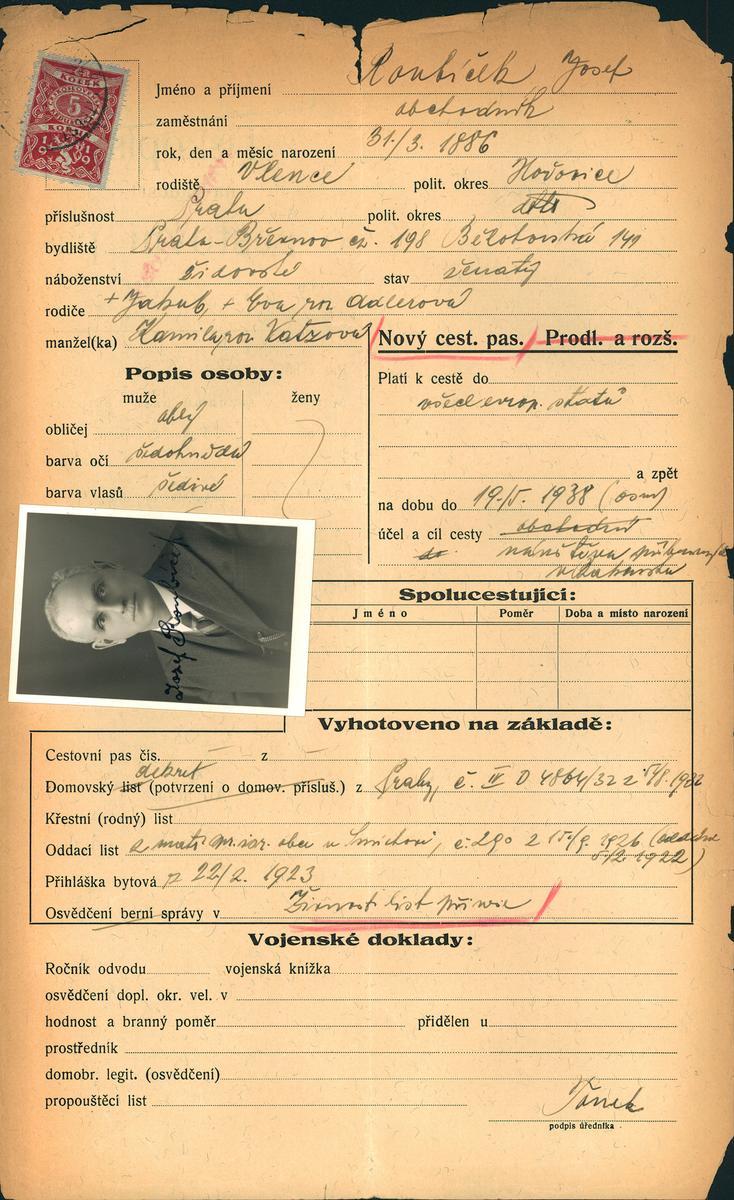 KOLEK
5
KORUN
1919
Jméno a příjmení Roubíček Josef
zaměstnání obchodník
rok, den a měsíc narození 31./3. 1886
rodiště Vlence polit. okres Hořovice
příslušnost Praha polit. okres
bydliště Praha-Břevnov čp. 198 Bělohorská 140
náboženství židovské stav ženatý
rodiče + Jakub, + Eva roz Adlerová
manžel(ka) Kamila roz Katzová Nový cest. pas. Prodl. a rozš.
Popis osoby:
muže ženy
Platí k cestě do
všech evrop. států
obličej oblý
barva očí šedohnědé
barva vlasů šedivé
a zpět
na dobu do 19./5. 1938 (osm)
účel a cíl cesty obchodní
návštěva příbuzných
Josef Roubíček
Spolucestující:
Jméno Poměr Doba a místo narození
Vyhotoveno na základě:
Cestovní pas čís. – z –
dekret
Domovský list (potvrzení o domov. přísluš.) z Prahy, č. IV D 4864/32 z 5/8. 1932
Křestní (rodný) list
Oddací list z matr. nr. isr. obce u Smíchově, č. 290 z 15./9. 1926 (oddáni
5./2. 1922)
Přihláška bytová z 22/2. 1923
Osvědčení berní správy v Živnosti list
Vojenské doklady:
Ročník odvodu vojenská knížka
osvědčení dopl. okr. vel. v
hodnost a branný poměr přidělen u
prostředník
domobr. legit. (osvědčení)
propouštěcí list
podpis úředníka